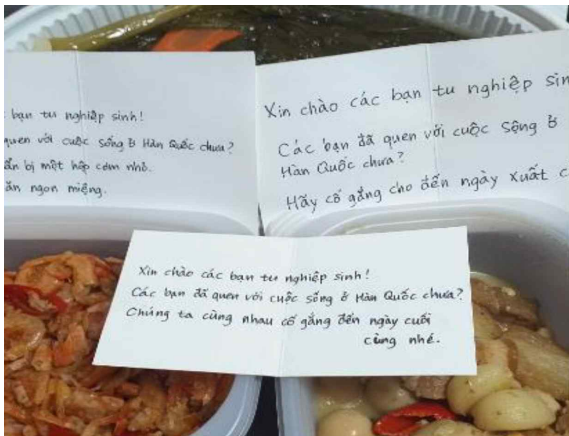 bạn tu nghiệp sinh!
quen với cuộc sống ở Hàn Quốc chưa?
bị một hộp cơm nhỏ.
ăn ngon miệng.
Xin chào các bạn tu nghiệp
Các bạn đã quen với cuộc sộng ở
Hàn Quốc chưa?
Hãy cố gắng cho đến ngày xuất
Xin chào các bạn tu nghiệp sinh!
Các bạn đã quen với cuộc sống ở Hàn Quốc chưa?
Chúng ta cùng nhau cố gắng đến ngày cuối
cùng nhé.